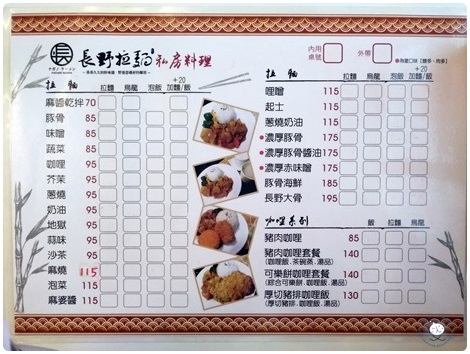 長
長野拉麵 私房料理
內用
桌號
外帶
拉麵
拉麵 烏龍 泡飯 +20
加麵/飯
麻醬乾拌 70
豚骨 85
味噌 85
蔬菜 85
咖哩 95
芥茉 95
蔥燒 95
奶油 95
地獄 95
蒜味 95
沙茶 95
麻燒 115
泡菜 115
麻婆醬 115
拉麵
拉麵 烏龍 泡飯 +20
加麵/飯
哩噌 115
起士 115
蔥燒奶油 115
濃厚豚骨 175
濃厚豚骨醬油 175
濃厚赤味噌 175
豚骨海鮮 185
長野大骨 195
咖哩系列
飯 拉麵 烏龍
豬肉咖哩 85
豬肉咖哩套餐 140
(咖哩飯.茶碗蒸.湯品)
可樂餅咖哩套餐 140
(綜合可樂餅.咖哩飯.湯品)
厚切豬排咖哩飯 130
(厚切豬排.咖哩飯.湯品)